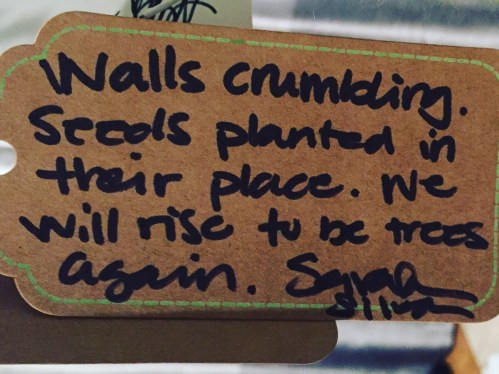 Walls crumbling.
Seeds planted in
their place. We
will rise to be trees
again. Sarah
Silva